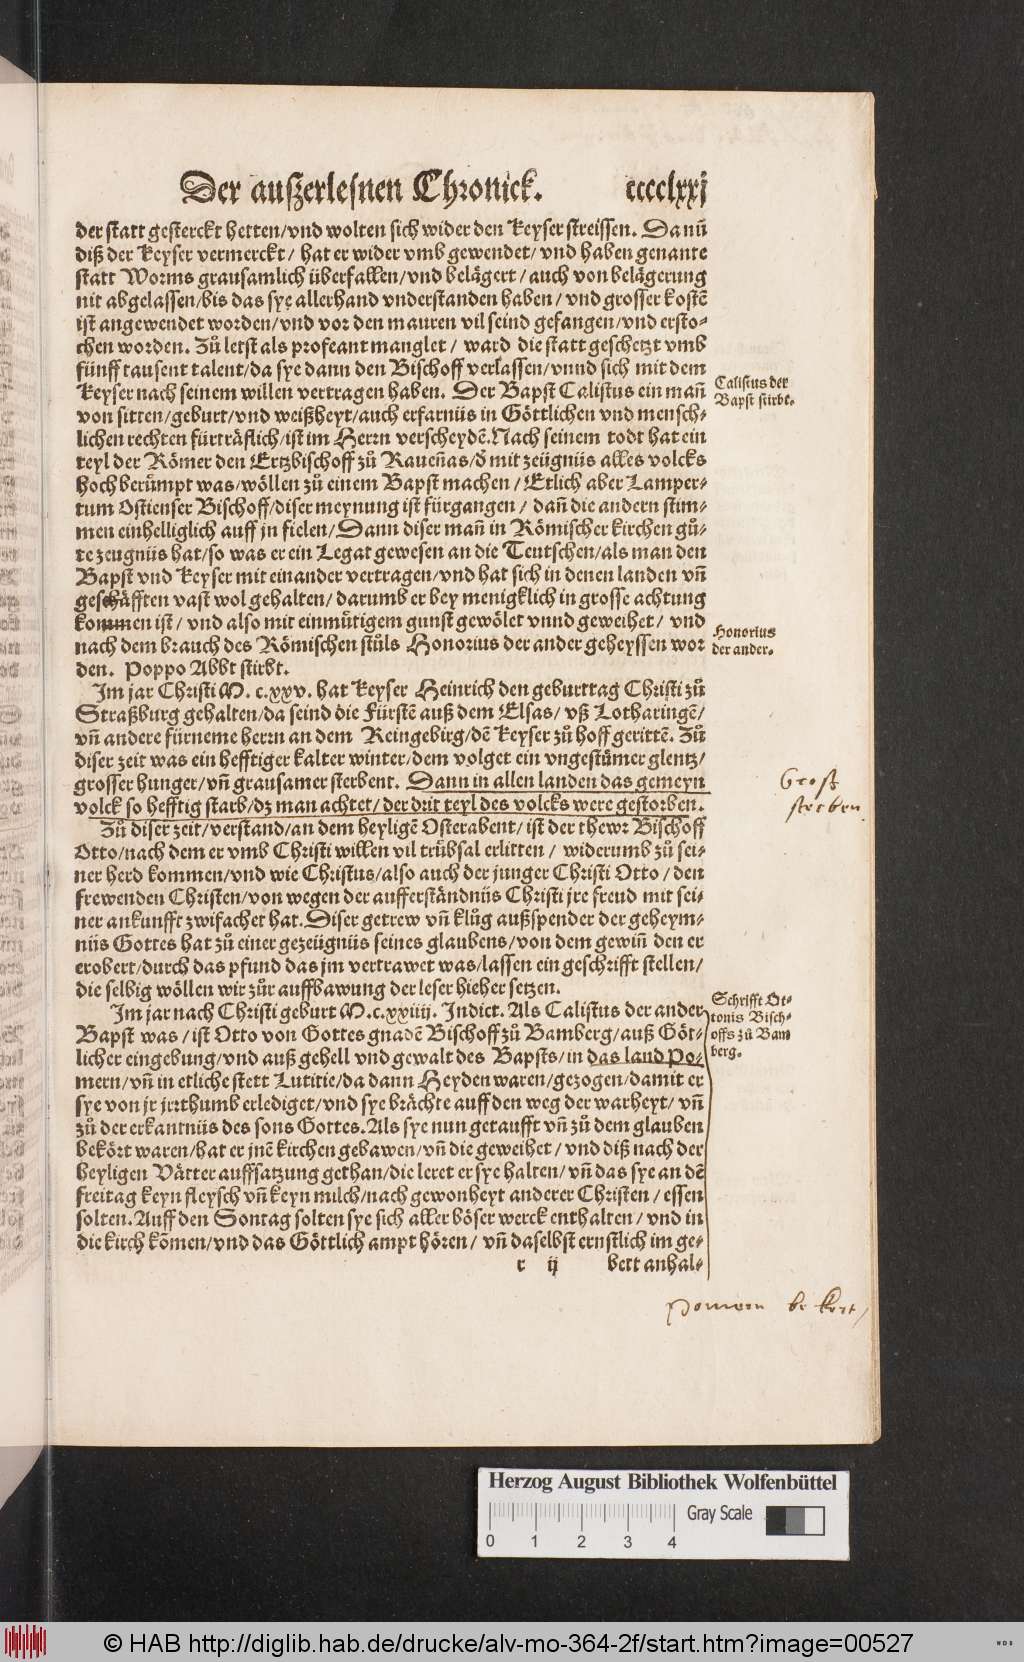 Der auszerlesnen Chronick. ccccclxxj
der statt gesterckt hetten/vnd wolten sich wider den Keyser streissen. Danñ
diß der Keyser vermerckt/ hat er wider vmb gewendet/ vnd haben genante
statt Worms grausamlich überfallen/vnd belägert/ auch von belägerung
nit abgelassen/bis das sye allerhand vnderstanden haben/ vnd grosser kostē
ist angewendet worden/vnd vor den mauren vil seind gefangen/vnd ersto-
chen worden. Zů letst als profeant manglet/ ward die statt geschetzt vmb
fünff tausent talent/da sye dann den Bischoff verlassen/vnnd sich mit dem
Keyser nach seinem willen vertragen haben. Der Bapst Calistus ein mañ
von sitten/geburt/vnd weißheyt/auch erfarnüs in Göttlichen vnd mensch-
lichen rechten fürträflich/ist im Herrn verscheydē. Nach seinem todt hat ein
teyl der Römer den Ertzbischoff zů Raueñas/ð mit zeügnüs alles volcks
hoch berůmpt was/wöllen zů einem Bapst machen/ Etlich aber Lamper-
tum Ostienser Bischoff/diser meynung ist fürgangen/ dañ die andern stim-
men einhelliglich auff jn fielen/Dann diser mañ in Römischer kirchen gů-
te zeugnüs hat/so was er ein Legat gewesen an die Teutschen/als man den
Bapst vnd Keyser mit einander vertragen/vnd hat sich in denen landen vñ
geschäfften vast wol gehalten/ darumb er bey menigklich in grosse achtung
kommen ist/ vnd also mit einmütigem gunst gewölet vnnd geweihet/ vnd
nach dem brauch des Römischen stůls Honorius der ander geheyssen wor
den. Poppo Abbt stirbt.
Calistus der
Bapst stirbt.
Honorius
der ander.
Im jar Christi M. c.xxv. hat Keyser Heinrich den geburttag Christi zů
Straßburg gehalten/da seind die Fürstē auß dem Elsas/ vß Lotharingē/
vñ andere fürneme herrn an dem Reingebirg/dē Keyser zů hoff gerittē. Zů
diser zeit was ein hefftiger kalter winter/dem volget ein vngestümer glentz/
grosser hunger/vñ grausamer sterbent. Dann in allen landen das gemeyn
volck so hefftig starb/dz man achtet/der drit teyl des volcks were gestorben.
Groß
sterben
Zů diser zeit/verstand/an dem heyligē Osterabent/ist der thewr Bischoff
Otto/nach dem er vmb Christi willen vil trůbsal erlitten/ widerumb zů sei-
ner herd kommen/vnd wie Christus/also auch der junger Christi Otto/den
frewenden Christen/von wegen der aufferständnüs Christi jre freud mit sei-
ner ankunfft zwifachet hat. Diser getrew vñ klůg außspender der geheym-
nüs Gottes hat zů einer gezeügnüs seines glaubens/von dem gewiñ den er
erobert/durch das pfund das jm vertrawet was/lassen ein geschrifft stellen/
die selbig wöllen wir zůr auffbawung der leser hieher setzen.
Im jar nach Christi geburt M.c.xxiiij. Indict. Als Calistus der ander
Bapst was/ist Otto von Gottes gnadē Bischoff zů Bamberg/auß Göt-
licher eingebung/vnd auß gehell vnd gewalt des Bapsts/in das land Po-
mern/vñ in etliche stett Lutitie/da dann Heyden waren/gezogen/damit er
sye von jr jrrthumb erlediget/vnd sye brächte auff den weg der warheyt/ vñ
zů der erkantnüs des sons Gottes. Als sye nun getaufft vñ zů dem glauben
bekört waren/hat er jnē kirchen gebawen/vñ die geweihet/ vnd diß nach der
heyligen Vätter auffsatzung gethan/die leret er sye halten/ vñ das sye an dē
freitag keyn fleysch vñ keyn milch/nach gewonheyt anderer Christen/ essen
solten. Auff den Sontag solten sye sich aller böser werck enthalten/ vnd in
die kirch kōmen/vnd das Göttlich ampt hören/ vñ daselbst ernstlich im ge-
Schrifft Ot-
tonis Bisch-
offs zů Bam
berg.
r ij bett anhal-
Pomern bekert
Herzog August Bibliothek Wolfenbüttel
Gray Scale
0 1 2 3 4
© HAB http://diglib.hab.de/drucke/alv-mo-364-2f/start.htm?image=00527